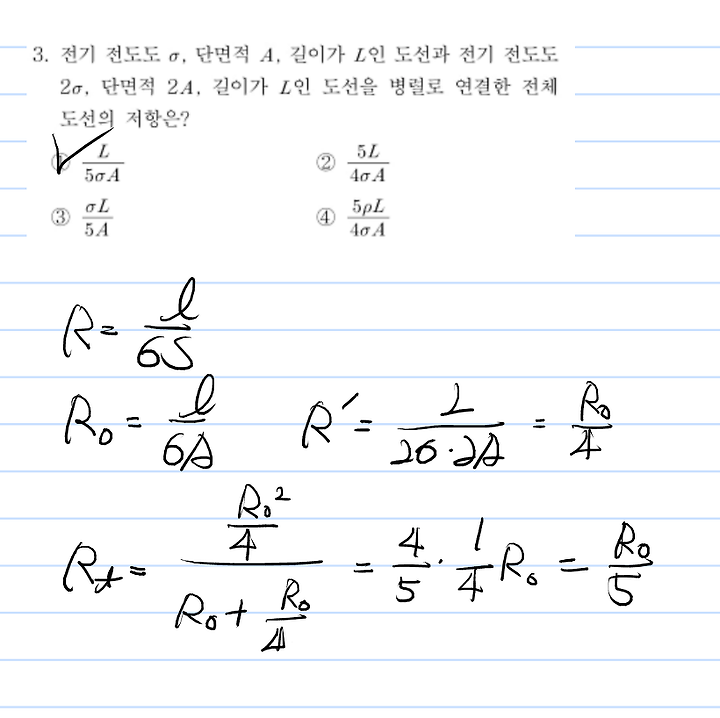 3. 전기 전도도 σ, 단면적 A, 길이가 L인 도선과 전기 전도도
2σ, 단면적 2A, 길이가 L인 도선을 병렬로 연결한 전체
도선의 저항은?
① L/5σA ② 5L/4σA
③ σL/5A ④ 5ρL/4σA
R = l/σS
R₀ = l/σA R′ = L/2σ·2A = R₀/4
Rt = (R₀²/4)/(R₀ + R₀/4) = 4/5 · 1/4 R₀ = R₀/5